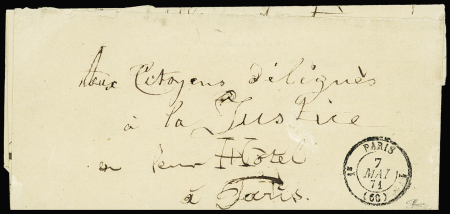 Aux Citoyens délégués
à la Justice
en leur Hôtel
à Paris.
PARIS
7
MAI
71
(60)